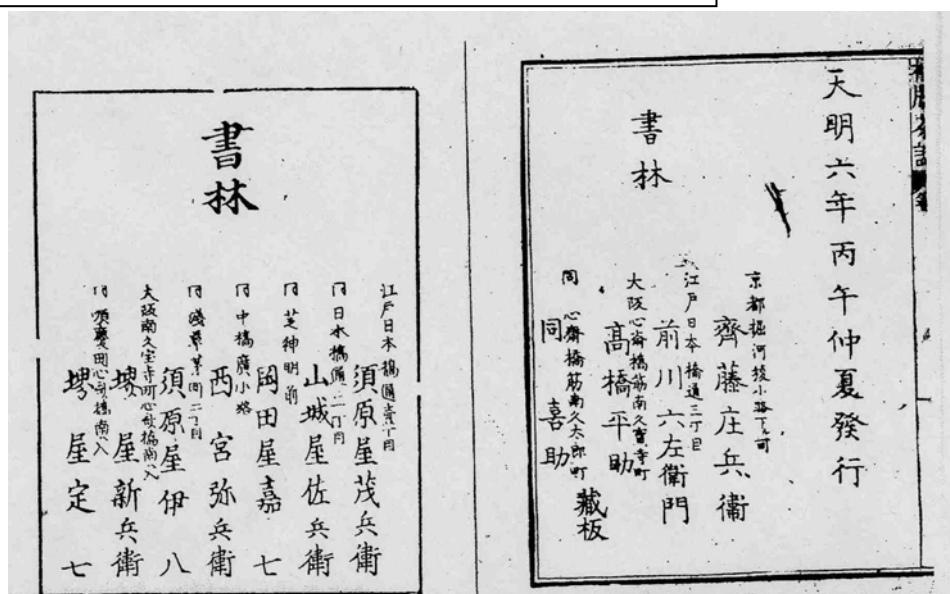 天明六年丙午仲夏發行
書林
京都堀河綾小路下ル町
齊藤庄兵衛
江戸日本橋通三丁目
前川六左衛門
大阪心齋橋筋南久寶寺町
高橋平助
同 心齋橋筋南久太郎町
同 喜助
藏板
書林
江戸日本橋通壹丁目
須原屋茂兵衛
同日本橋通二丁目
山城屋佐兵衛
同芝神明前
岡田屋嘉七
同中橋廣小路
西宮弥兵衛
同淺草茅町二丁目
須原屋伊八
大阪南久宝寺町心斎橋南入
堺屋新兵衛
同順慶町心斎橋南入
堺屋定七